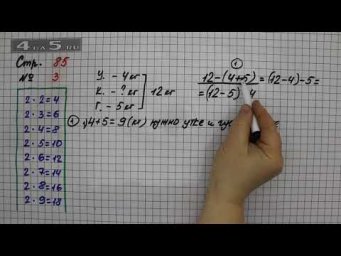 4 LA 5.RU
Стр. 85
№ 3
2 · 2 = 4
2 · 3 = 6
2 · 4 = 8
2 · 5 = 10
2 · 6 = 12
2 · 7 = 14
2 · 8 = 16
2 · 9 = 18
У. – 4 кг
К. – ? кг
Г. – 5 кг
12 кг
1
12 – (4 + 5) = (12 – 4) – 5 =
= (12 – 5) 4
1) 4 + 5 = 9 (кг) нужно утке и